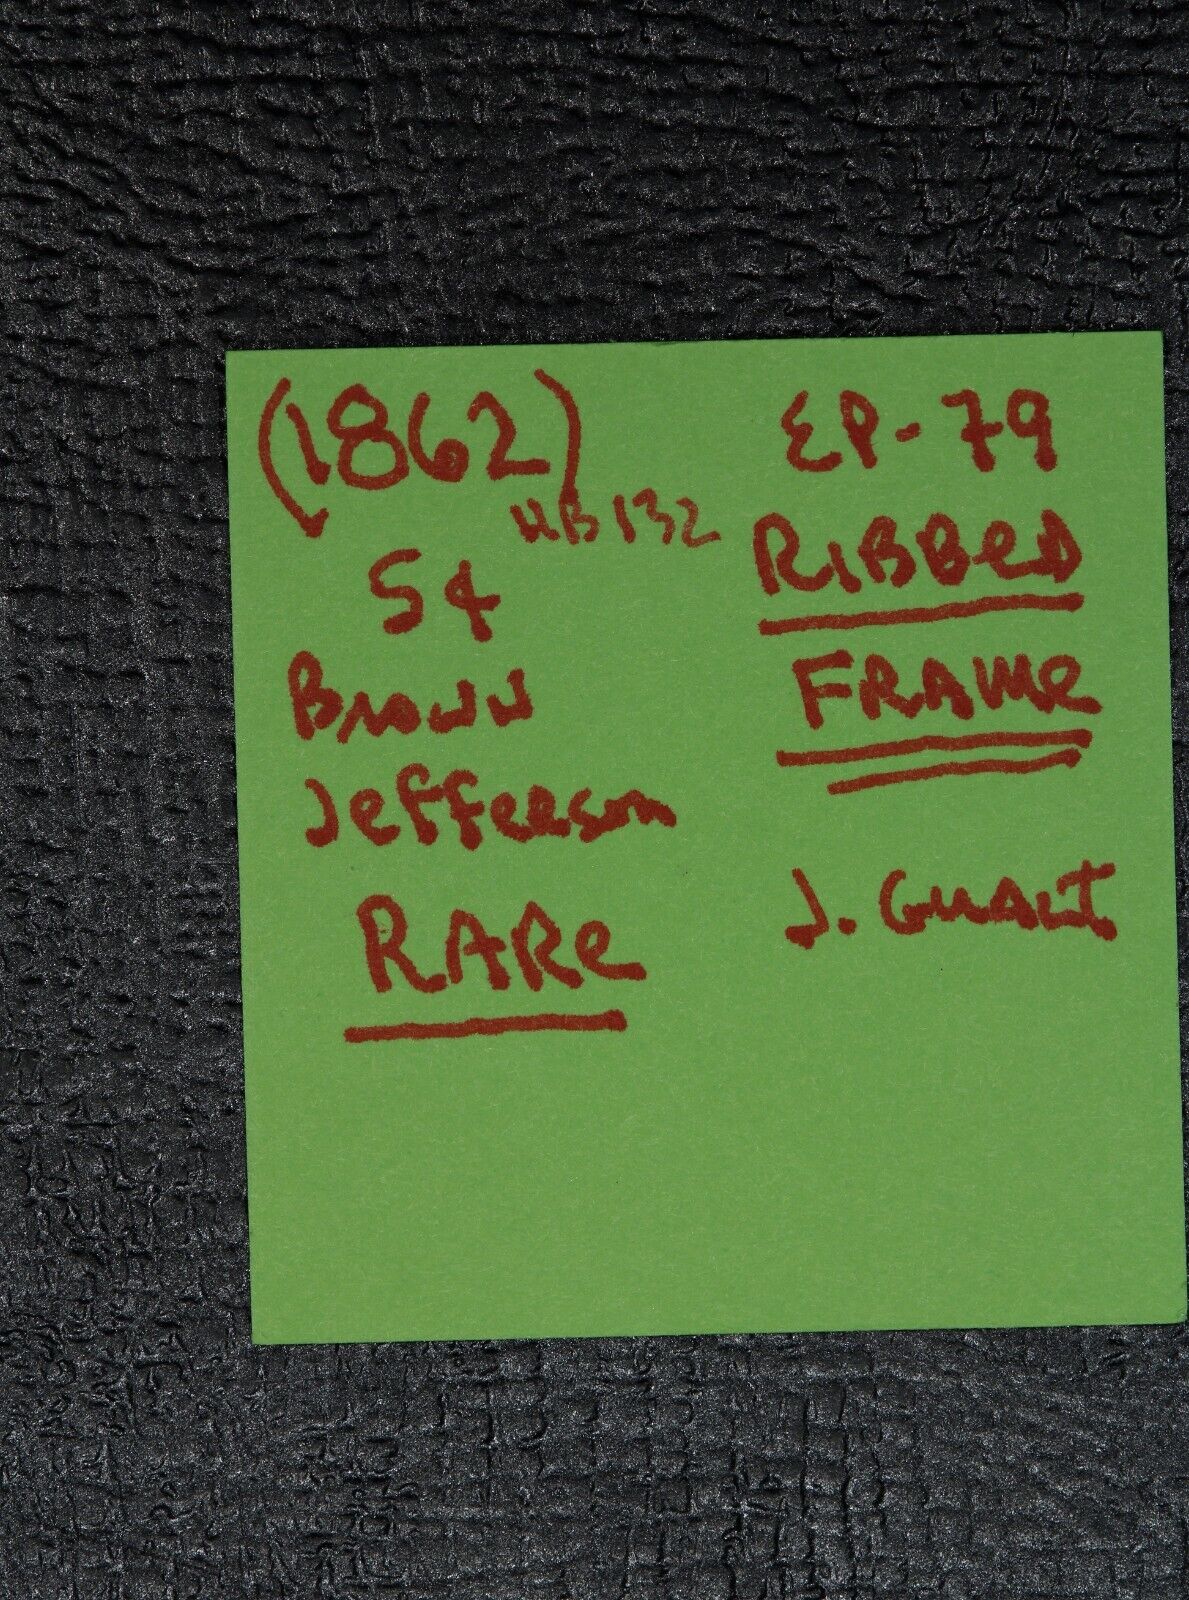 (1862)
HB 132
5¢
Brown
Jefferson
RARe
EP-79
RIBBeD
FRAMe
J. GuALT